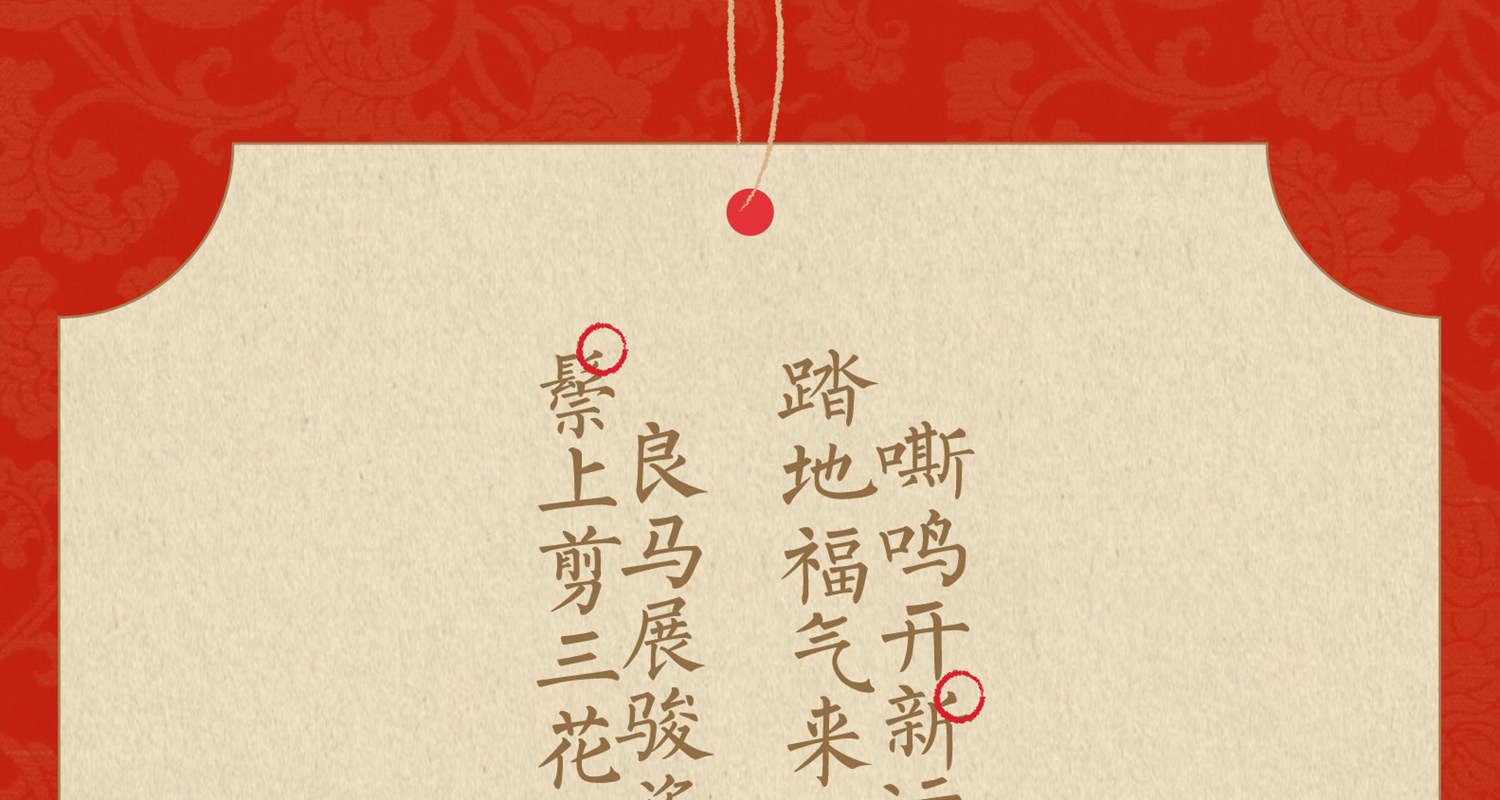 嘶鸣开新
踏地福气来
良马展骏
鬃上剪三花